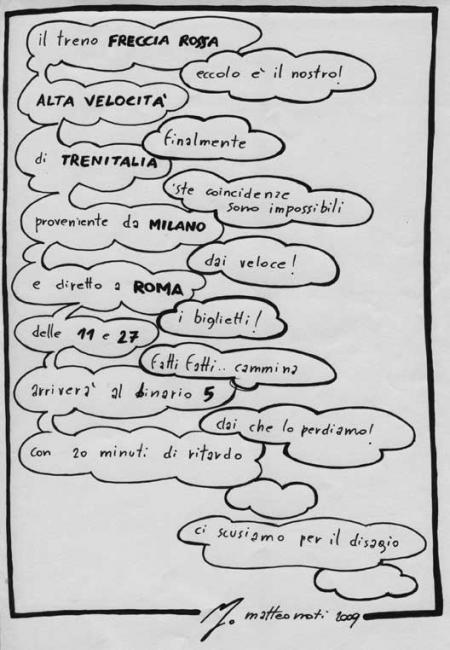 il treno FRECCIA ROSSA
eccolo è il nostro!
ALTA VELOCITA'
finalmente
di TRENITALIA
'ste coincidenze
sono impossibili
proveniente da MILANO
dai veloce!
e diretto a ROMA
i biglietti!
delle 11 e 27
fatti fatti.. cammina
arriverà al binario 5
dai che lo perdiamo!
con 20 minuti di ritardo
ci scusiamo per il disagio
matteo 2009